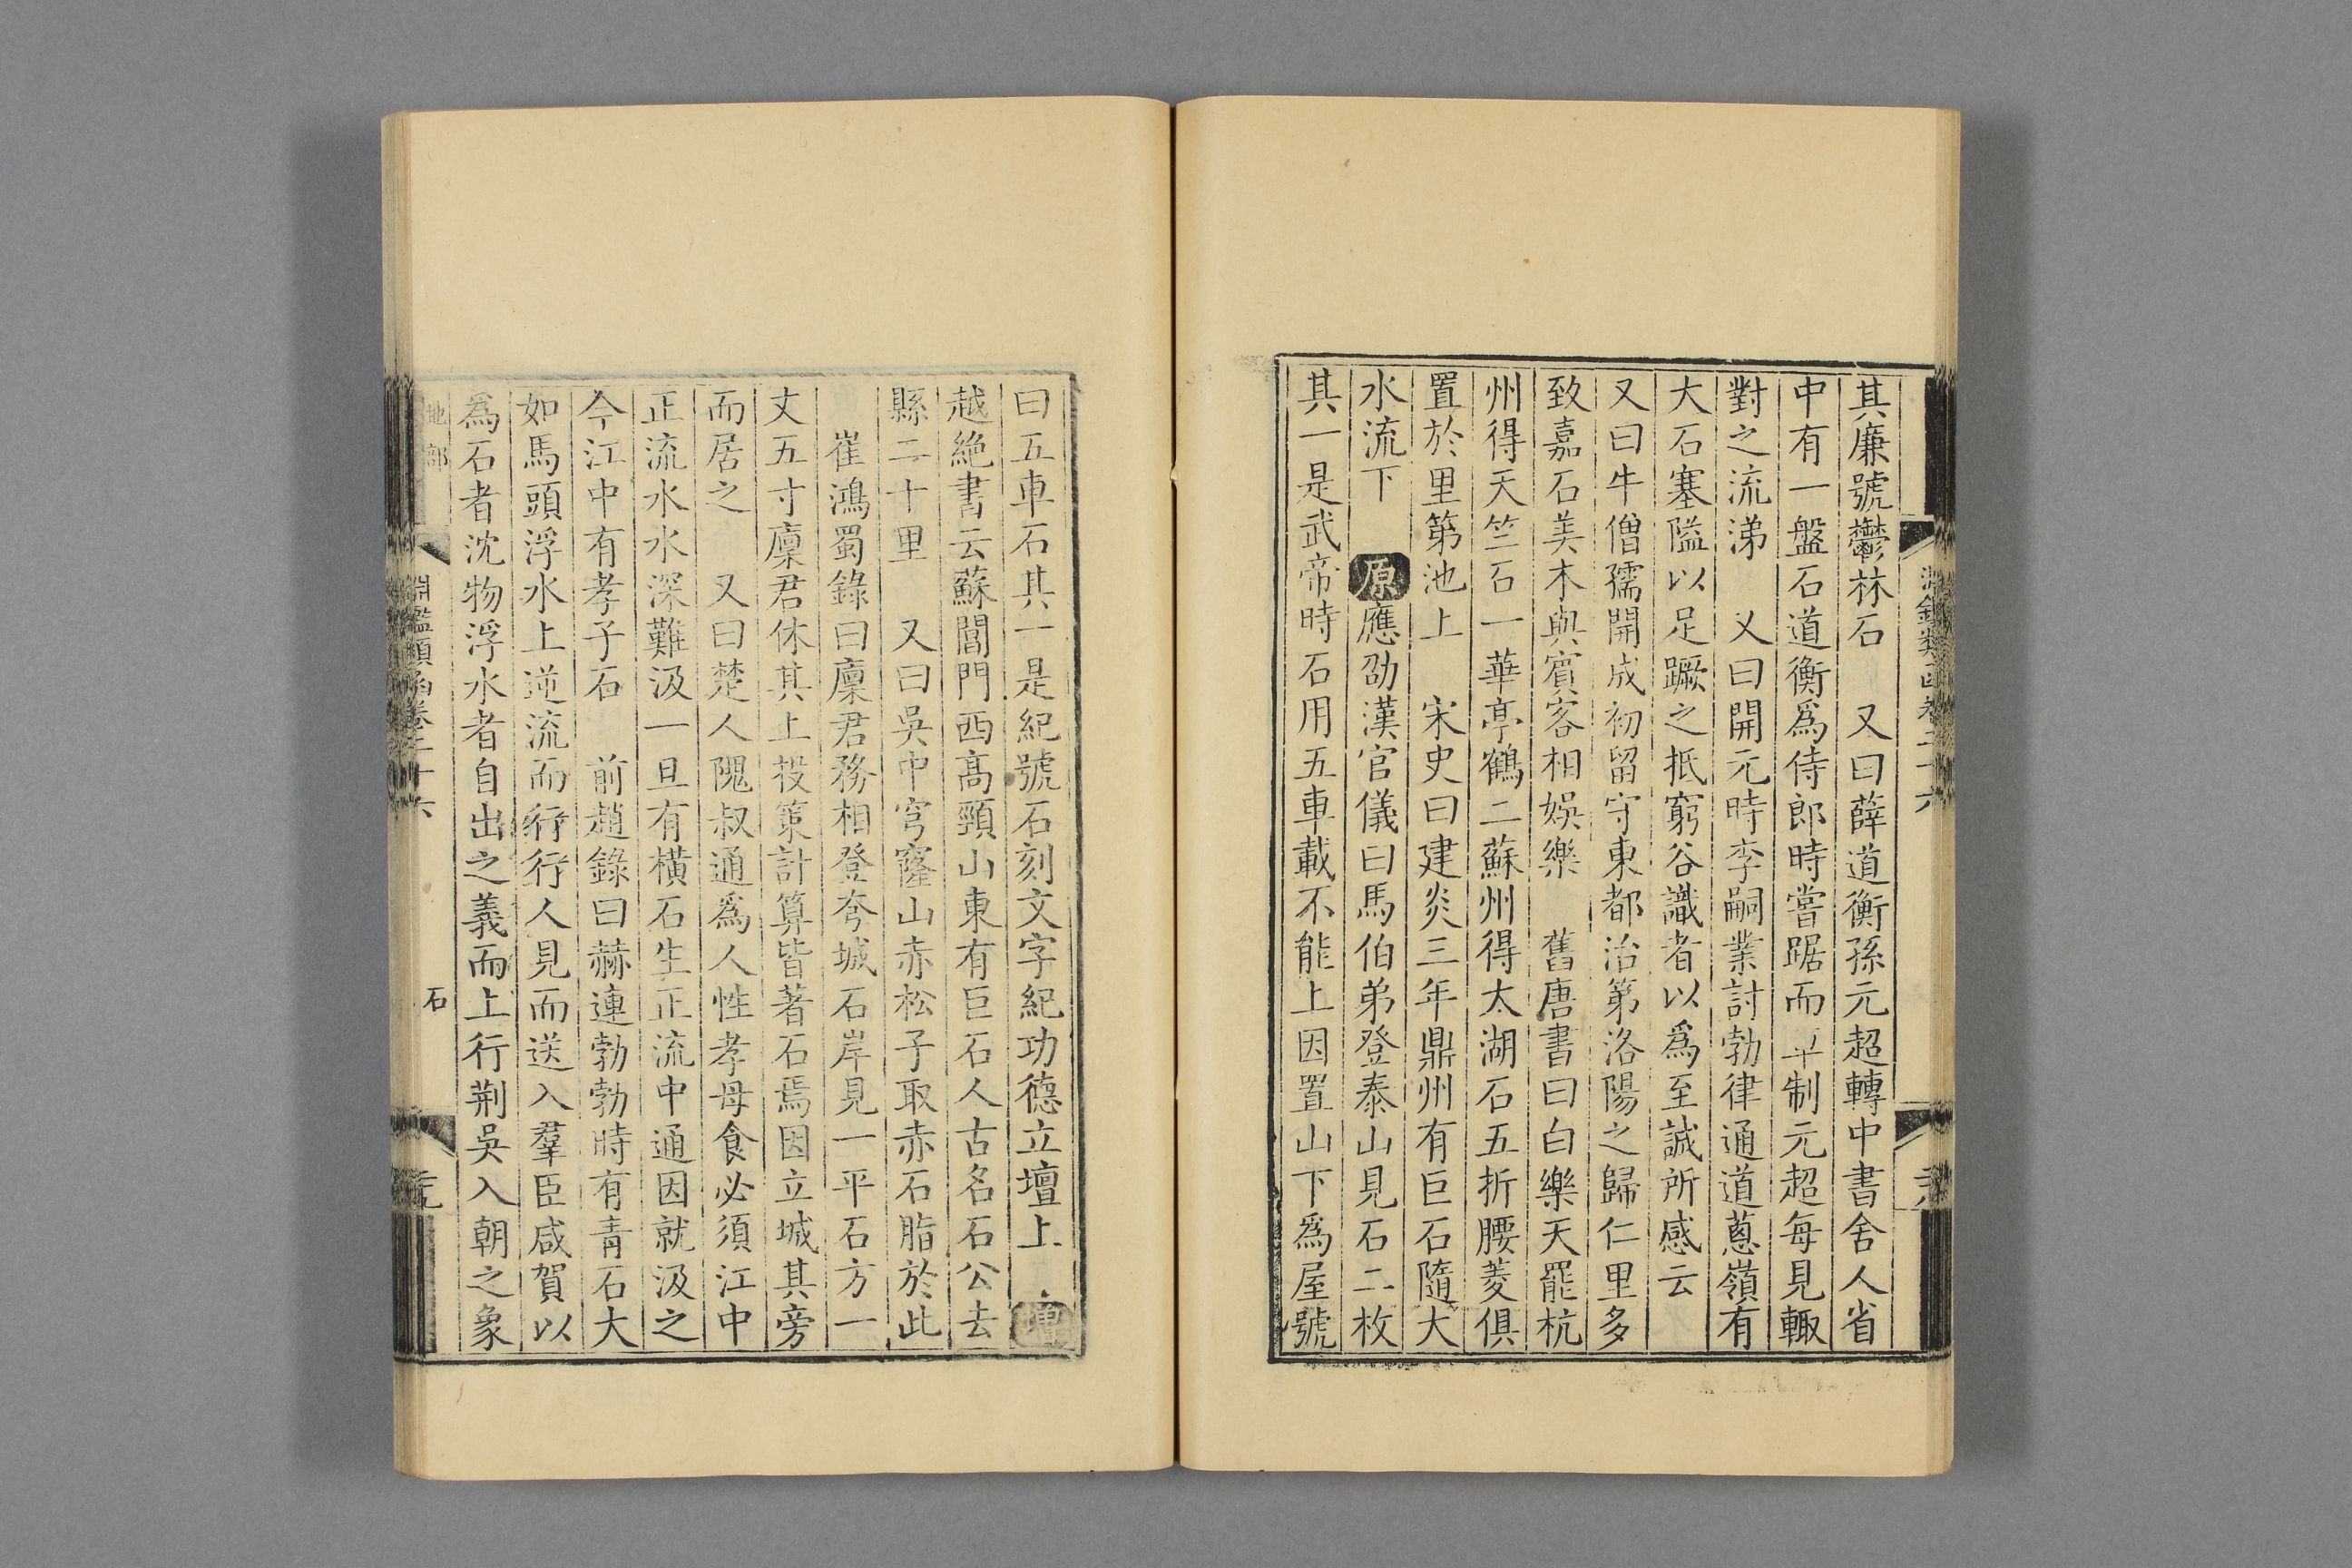 其廉號鬱林石　又曰薛道衡孫元超轉中書舍人省
中有一盤石道衡爲侍郎時嘗踞而草制元超每見輙
對之流涕　又曰開元時李嗣業討勃律通道蔥嶺有
大石塞隘以足蹶之抵窮谷識者以爲至誠所感云
又曰牛僧孺開成初留守東都治第洛陽之歸仁里多
致嘉石美木與賓客相娛樂　舊唐書曰白樂天罷杭
州得天竺石一華亭鶴二蘇州得太湖石五折腰菱俱
置於里第池上　宋史曰建炎三年鼎州有巨石隨大
水流下　原應劭漢官儀曰馬伯弟登泰山見石二枚
其一是武帝時石用五車載不能上因置山下爲屋號
曰五車石其一是紀號石刻文字紀功德立壇上　增
越絶書云蘇閶門西高頸山東有巨石人古名石公去
縣二十里　又曰吳中穹窿山赤松子取赤石脂於此
崔鴻蜀錄曰廩君務相登夸城石岸見一平石方一
丈五寸廩君休其上投策計算皆著石焉因立城其旁
而居之　又曰楚人隗叔通爲人性孝母食必須江中
正流水水深難汲一旦有橫石生正流中通因就汲之
今江中有孝子石　前趙錄曰赫連勃勃時有青石大
如馬頭浮水上逆流而行行人見而送入羣臣咸賀以
爲石者沈物浮水者自出之義而上行荆吳入朝之象
地部　淵鑑類函卷二十六　石